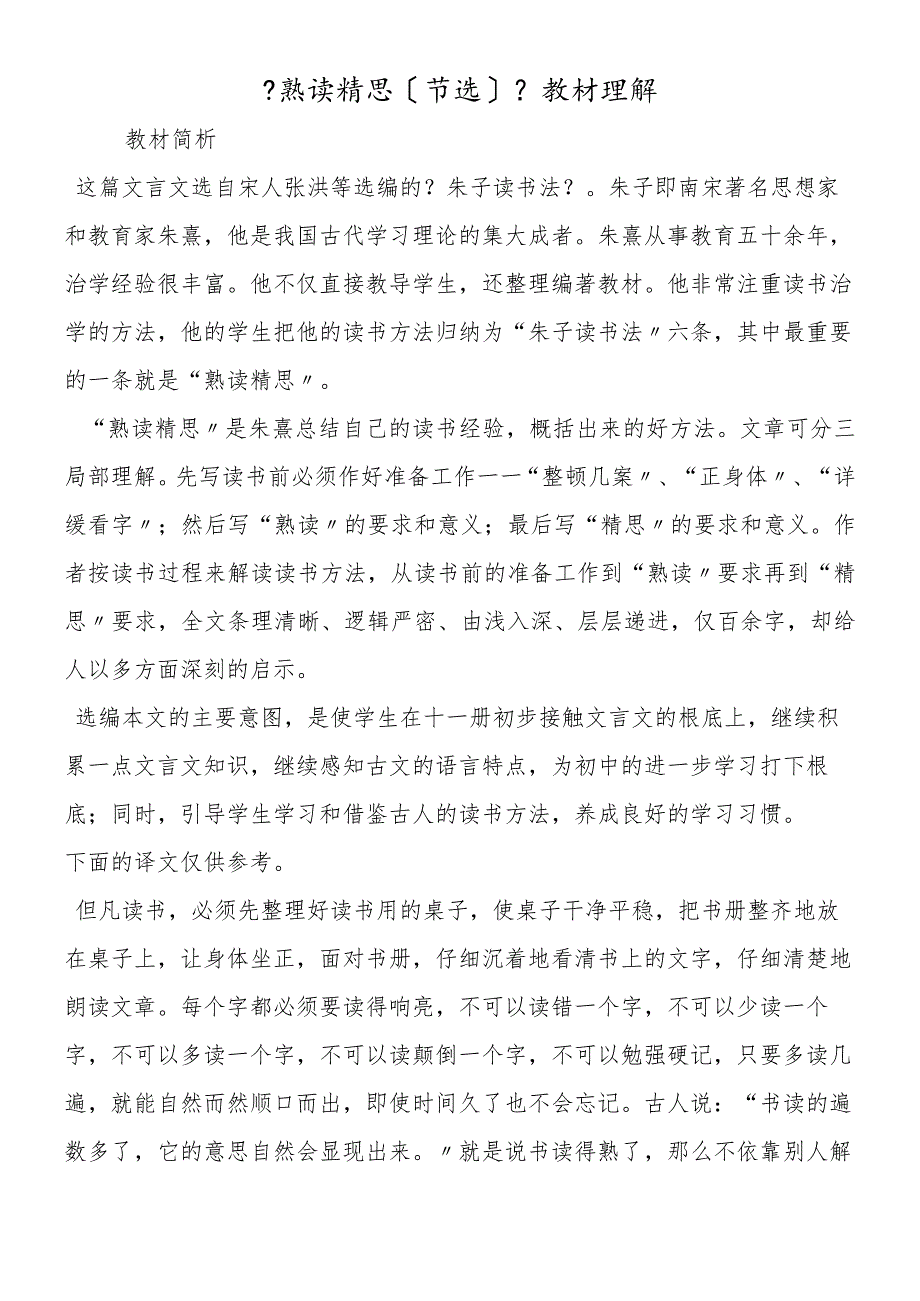 ?熟读精思〔节选〕? 教材理解
教材简析
这篇文言文选自宋人张洪等选编的?朱子读书法?。朱子即南宋著名思想家
和教育家朱熹，他是我国古代学习理论的集大成者。朱熹从事教育五十余年，
治学经验很丰富。他不仅直接教导学生，还整理编著教材。他非常注重读书治
学的方法，他的学生把他的读书方法归纳为“朱子读书法〃六条，其中最重要
的一条就是“熟读精思〃。
“熟读精思〃是朱熹总结自己的读书经验，概括出来的好方法。文章可分三
局部理解。先写读书前必须作好准备工作一一“整顿几案〃、“正身体〃、“详
缓看字〃；然后写“熟读〃的要求和意义；最后写“精思〃的要求和意义。作
者按读书过程来解读读书方法，从读书前的准备工作到“熟读〃要求再到“精
思〃要求，全文条理清晰、逻辑严密、由浅入深、层层递进，仅百余字，却给
人以多方面深刻的启示。
选编本文的主要意图，是使学生在十一册初步接触文言文的根底上，继续积
累一点文言文知识，继续感知古文的语言特点，为初中的进一步学习打下根
底；同时，引导学生学习和借鉴古人的读书方法，养成良好的学习习惯。
下面的译文仅供参考。
但凡读书，必须先整理好读书用的桌子，使桌子干净平稳，把书册整齐地放
在桌子上，让身体坐正，面对书册，仔细沉着地看清书上的文字，仔细清楚地
朗读文章。每个字都必须要读得响亮，不可以读错一个字，不可以少读一个
字，不可以多读一个字，不可以读颠倒一个字，不可以勉强硬记，只要多读几
遍，就能自然而然顺口而出，即使时间久了也不会忘记。古人说：“书读的遍
数多了，它的意思自然会显现出来。〃就是说书读得熟了，那么不依靠别人解